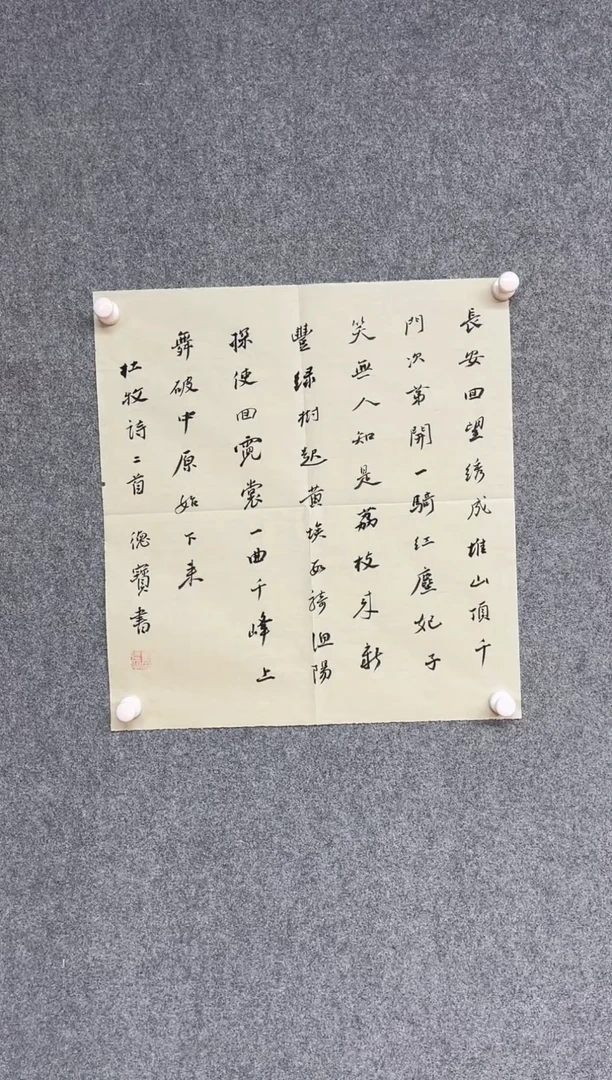 長安回望绣成堆山頂千
門次第開一騎红塵妃子
笑無人知是荔枝来新
豐绿樹起黄埃数骑渔陽
探使回霓裳一曲千峰上
舞破中原始下来
杜牧诗二首 德寶書